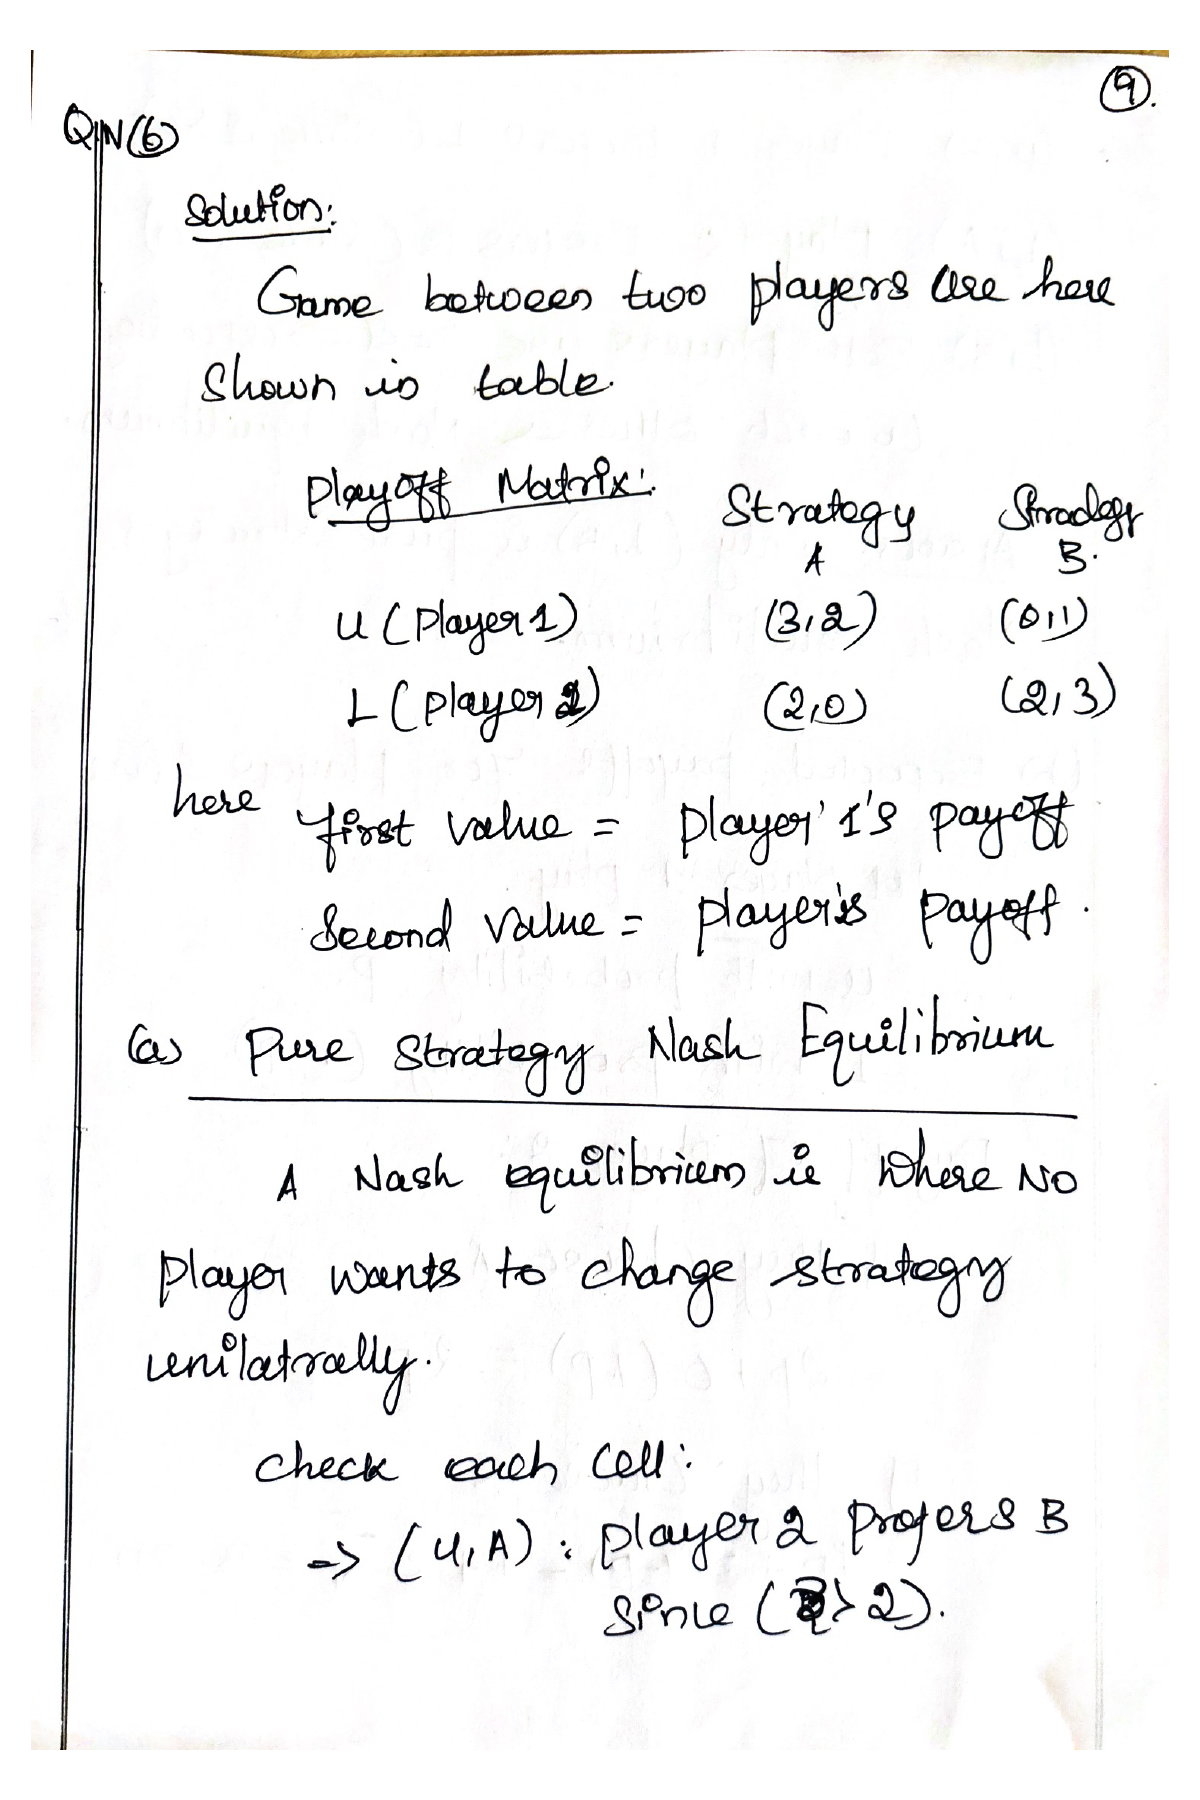 9.
QN(6)
Solution:
Game between two players are here
Shown in table.
Playoff Matrix:
Strategy A
Strategy B.
U (Player 1) (3,2) (0,1)
L (Player 2) (2,0) (2,3)
here first value = player' 1's payoff
Second value = player's payoff.
(a) Pure Strategy Nash Equilibrium
A Nash equilibrium is where NO
player wants to change strategy
unilatrally.
check each cell:
=> (U,A) : player 2 prefers B
since ( > 2).